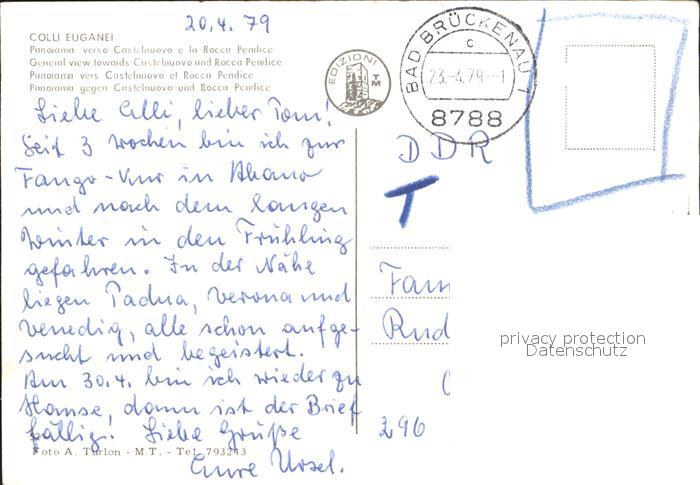 20.4.79
COLLI EUGANEI
Panorama verso Castelnuovo e la Rocca Pendice
General view towards Castelnuovo and Rocca Pendice
Panorama vers Castelnuovo et Rocca Pendice
Panorama gegen Castelnuovo und Rocca Pendice
EDIZIONI
TM
BAD BRÜCKENAU 1
c
23.-4.79.--1
8788
Liebe Elli, lieber Tom!
Seit 3 Wochen bin ich zur
Fango-Kur in Abano
und nach dem langen
Winter in den Frühling
gefahren. In der Nähe
liegen Padua, Verona und
Venedig, alle schon aufge-
sucht und begeistert.
Am 30.4. bin ich wieder zu
Hause, dann ist der Brief
fällig. Liebe Grüße
Eure Ursel.
Foto A. Turlon - M.T. - Tel. 793243
DDR
T
Fam
Rud
296
privacy protection
Datenschutz